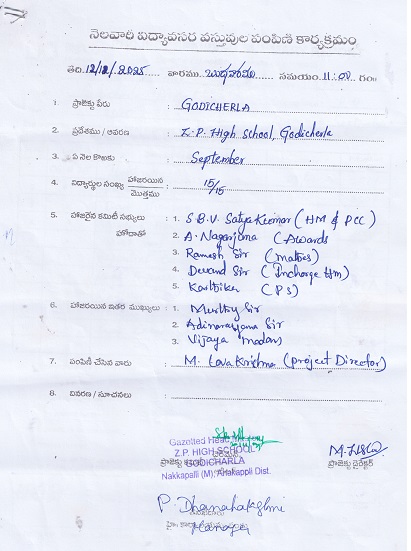 నెలవారి విద్యావసర వస్తువుల పంపిణి కార్యక్రమం
తేది: 12/12/2025 వారము బుధవారం సమయం 11:00 గం॥
1. ప్రాజెక్టు పేరు : GODICHERLA
2. ప్రదేశము / ఆవరణ : Z.P. High School, Godicherla
3. ఏ నెల కొఱకు : September
4. విద్యార్థుల సంఖ్య హాజరయిన / మొత్తము : 15/15
5. హాజరైన కమిటీ సభ్యులు హోదాతో : 1. S.B.V. Satya Kumar (HM & PCC)
2. A. Nagarjuna (Awards
3. Ramesh Sir (maths)
4. Devand Sir (Incharge HM)
5. Karthika (PS)
6. హాజరయిన ఇతర ముఖ్యులు : 1. Murthy Sir
2. Adinarayana Sir
3. Vijaya madam
7. పంపిణీ చేసిన వారు : M. Lova Krishna (project Director)
8. వివరణ / సూచనలు :
Gazetted Head
Z.P. HIGH SCHOOL
GODICHERLA
Nakkapalli (M), Anakappli Dist.
ప్రాజెక్టు డైరెక్టర్
P. Dhanalakshmi
Manager